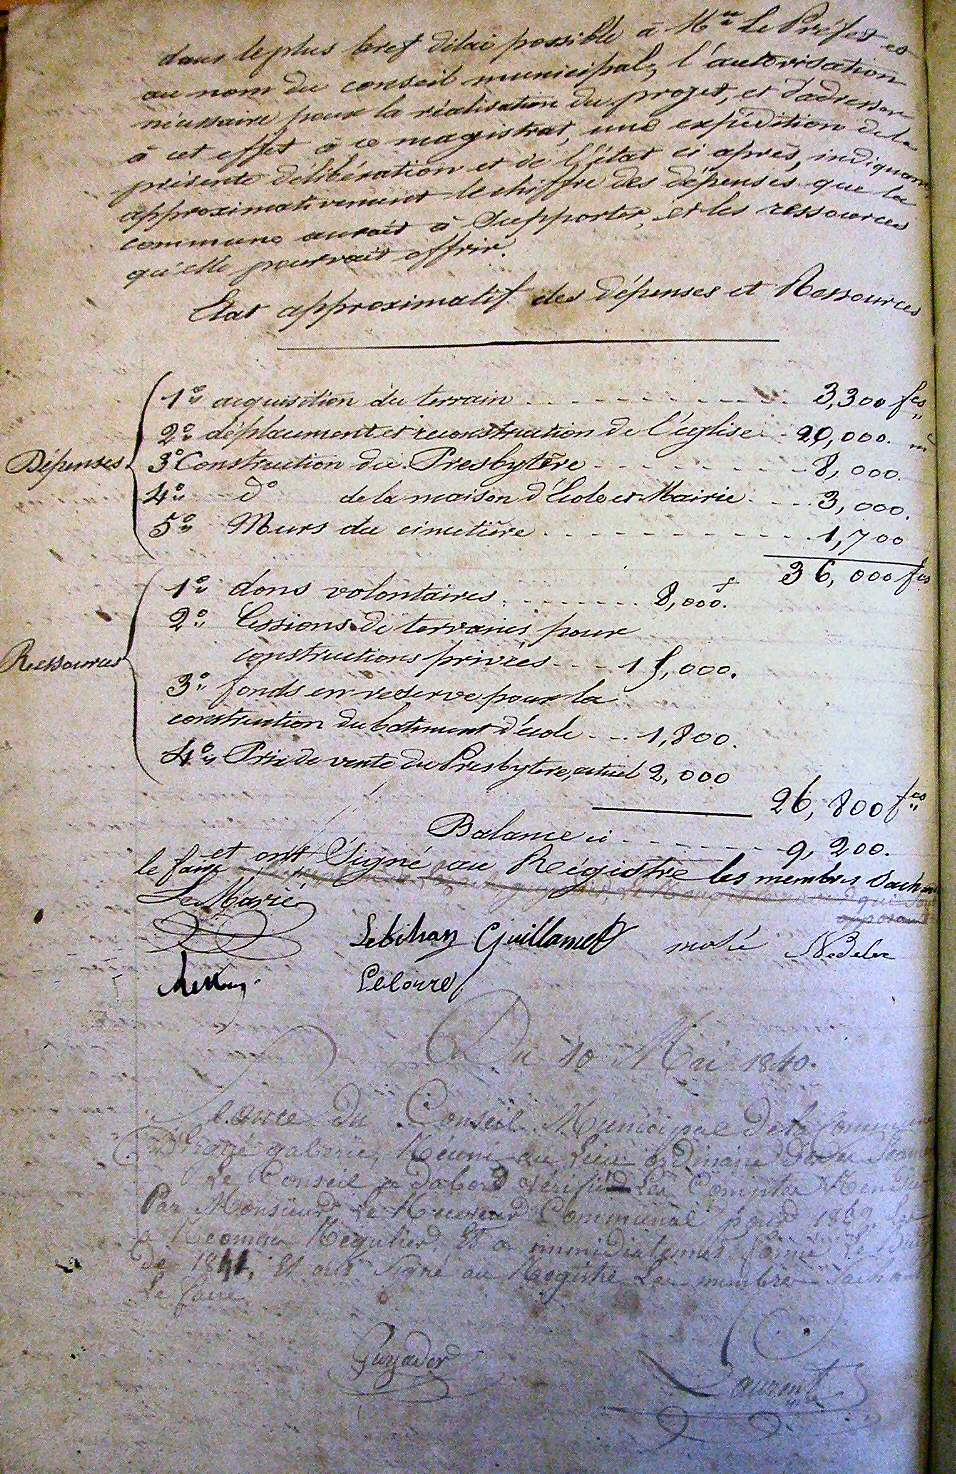 dans le plus bref délai possible à Mr. Le Préfet et
au nom du conseil municipal, l'autorisation
nécessaire pour la réalisation du projet, et d'adresser
à cet effet à ce magistrat, une expédition de la
présente délibération et de l'état ci après, indiquant
approximativement le chiffre des dépenses que la
commune aurait à supporter, et les ressources
qu'elle pourrait offrir.
Etat approximatif des dépenses et Ressources
Dépenses
1° acquisition du terrain 3,300 fcs
2° déplacement et reconstruction de l'église 20,000.
3° Construction du Presbytère 8,000.
4° d° de la maison d'Ecole et Mairie 3,000.
5° Murs du cimetière 1,700
36,000 fcs
Ressources
1° dons volontaires 8,000f.
2° Cessions de terrains pour
constructions privées 15,000.
3° fonds en reserve pour la
construction du batiment d'école 1,800.
4° Prix de vente du Presbytère actuel 2,000
26,800 fcs
Balance ci 9,200.
et ont signé au Régistre les membres sachant
le faire
Le Marié
Lebihan Guillamet Nédelec
Lelouref
Du 10 Mai 1840.
Séance du Conseil Municipal de la Commune
Réuni au Lieu ordinaire de ses Séances
Le Conseil a d'abord vérifié Les Comptes Rendus
Par Monsieur Le Receveur Communal pour 1839 Les
a Reconnu Régulier, Et a immédiatement formé Le
de 1841, Et ont signé au Registre Les membres sachant
Le faire
Guyader
Laurent